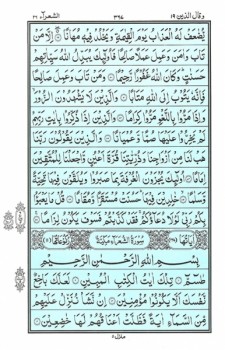 وقال الذين ١٩ ٣٩٤ الشعرآء ٢٦
يُّضٰعَفْ لَهُ الْعَذَابُ يَوْمَ الْقِيٰمَةِ وَيَخْلُدْ فِيْهٖ مُهَانًا ۝ اِلَّا مَنْ
تَابَ وَاٰمَنَ وَعَمِلَ عَمَلًا صَالِحًا فَاُولٰٓئِكَ يُبَدِّلُ اللّٰهُ سَيِّاٰتِهِمْ
حَسَنٰتٍ وَكَانَ اللّٰهُ غَفُوْرًا رَّحِيْمًا ۝ وَمَنْ تَابَ وَعَمِلَ صَالِحًا
فَاِنَّهٗ يَتُوْبُ اِلَى اللّٰهِ مَتَابًا ۝ وَالَّذِيْنَ لَا يَشْهَدُوْنَ الزُّوْرَ
وَاِذَا مَرُّوْا بِاللَّغْوِ مَرُّوْا كِرَامًا ۝ وَالَّذِيْنَ اِذَا ذُكِّرُوْا بِاٰيٰتِ رَبِّهِمْ
لَمْ يَخِرُّوْا عَلَيْهَا صُمًّا وَّعُمْيَانًا ۝ وَالَّذِيْنَ يَقُوْلُوْنَ رَبَّنَا
هَبْ لَنَا مِنْ اَزْوَاجِنَا وَذُرِّيّٰتِنَا قُرَّةَ اَعْيُنٍ وَّاجْعَلْنَا لِلْمُتَّقِيْنَ
اِمَامًا ۝ اُولٰٓئِكَ يُجْزَوْنَ الْغُرْفَةَ بِمَا صَبَرُوْا وَيُلَقَّوْنَ فِيْهَا تَحِيَّةً
وَّسَلٰمًا ۝ خٰلِدِيْنَ فِيْهَا حَسُنَتْ مُسْتَقَرًّا وَّمُقَامًا ۝ قُلْ مَا يَعْبَؤُا
بِكُمْ رَبِّيْ لَوْلَا دُعَآؤُكُمْ فَقَدْ كَذَّبْتُمْ فَسَوْفَ يَكُوْنُ لِزَامًا ۝
سُوْرَةُ الشُّعَرَآءِ مَكِّيَّةٌ
بِسْمِ اللّٰهِ الرَّحْمٰنِ الرَّحِيْمِ
طٰسٓمّٓ ۝ تِلْكَ اٰيٰتُ الْكِتٰبِ الْمُبِيْنِ ۝ لَعَلَّكَ بَاخِعٌ
نَّفْسَكَ اَلَّا يَكُوْنُوْا مُؤْمِنِيْنَ ۝ اِنْ نَّشَاْ نُنَزِّلْ عَلَيْهِمْ
مِّنَ السَّمَآءِ اٰيَةً فَظَلَّتْ اَعْنَاقُهُمْ لَهَا خٰضِعِيْنَ ۝